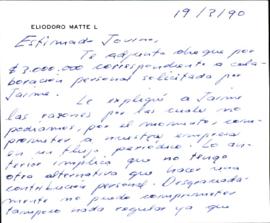 19/3/90
ELIODORO MATTE L
Estimado Jovino,
Te adjunto cheque por
$3.000.000 correspondiente a cola-
boración personal solicitada por
Jaime.
Le expliqué a Jaime
las razones por las cuales no
podíamos, por el momento, com-
prometer a nuestra empresa
en un flujo periódico. Lo an-
terior implica que no tengo
otra alternativa que hacer una
contribución personal. Desgraciada-
mente no puedo comprometer
tampoco nada regular ya que